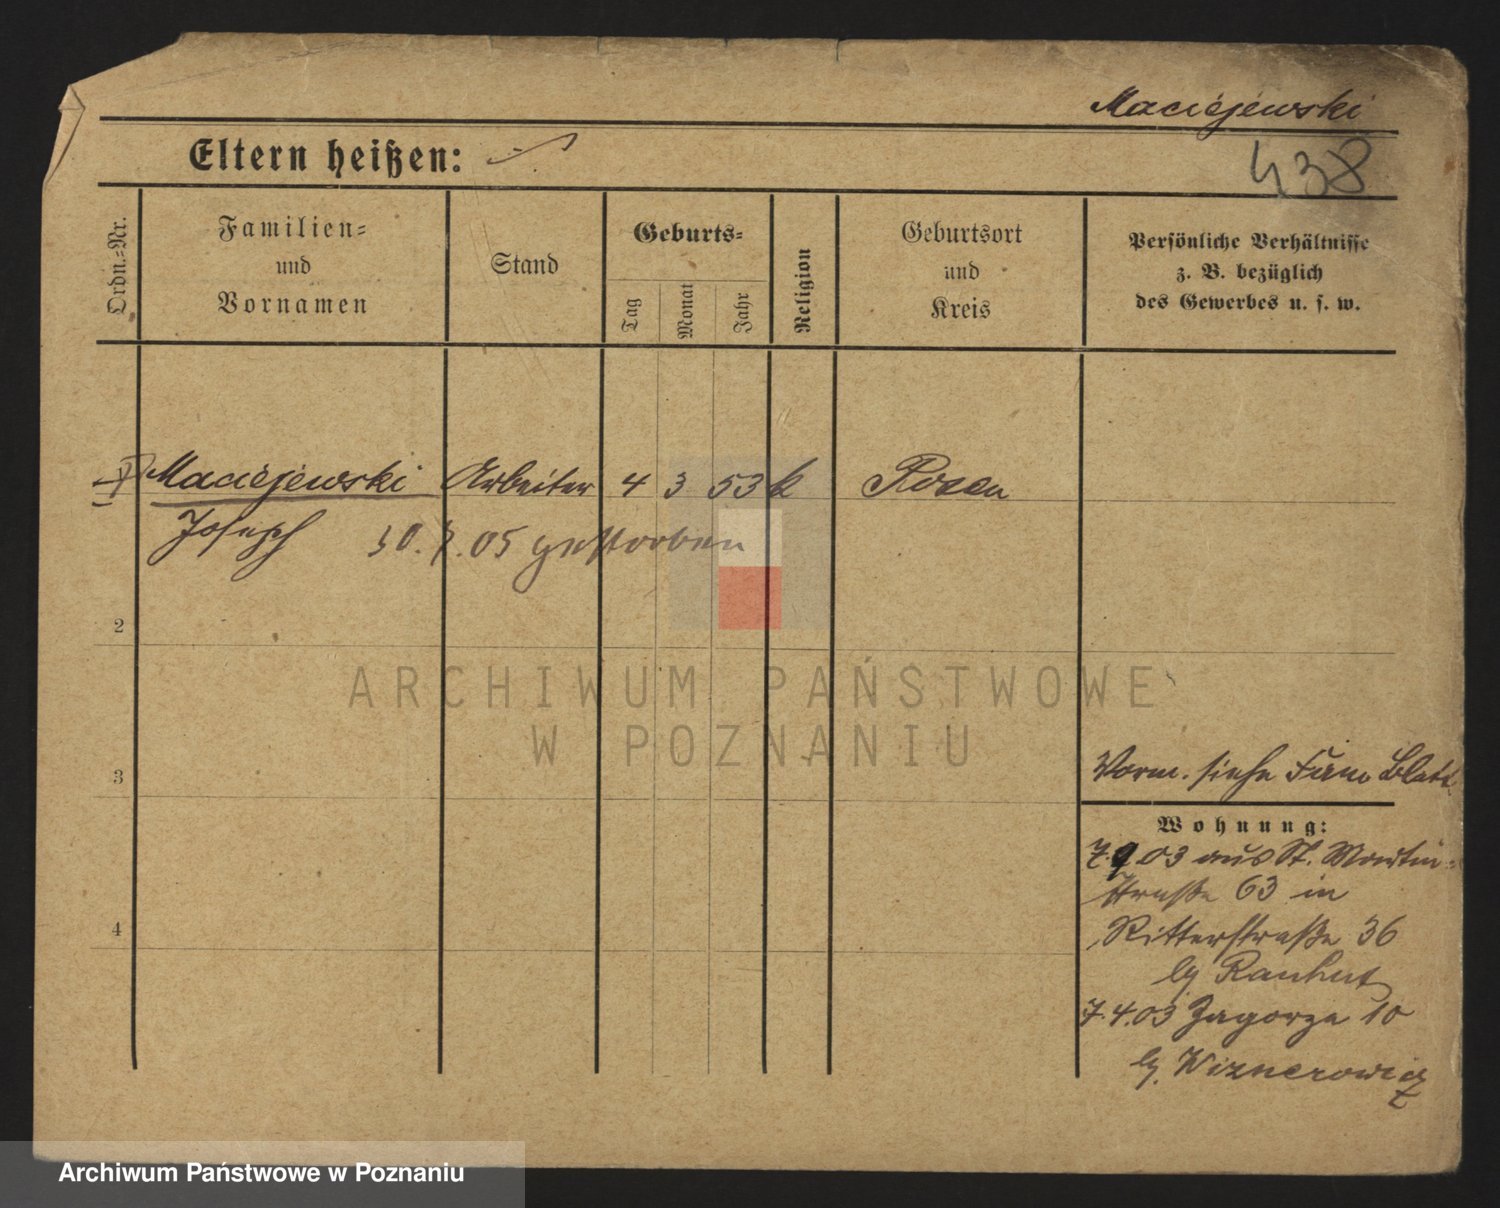 Maciejewski
438
Eltern heißen:
Ordn.-Nr.
Familien-
und
Vornamen
Stand
Geburts-
Tag
Monat
Jahr
Religion
Geburtsort
und
Kreis
Persönliche Verhältnisse
z. B. bezüglich
des Gewerbes u. s. w.
Maciejewski Arbeiter 4 3 53 k Posen
Joseph 30. 7. 05 gestorben
2
3
4
ARCHIWUM PAŃSTWOWE
W POZNANIU
Vorm. siehe Fam Blatt
Wohnung:
03 aus St. Martin-
straße 63 in
Ritterstraße 36
Rauhut
7.4.03 Zagorze 10
Wiznerowicz
Archiwum Państwowe w Poznaniu